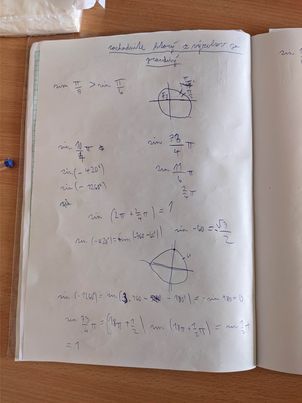 rozhodnite ktorý z výrokov je
pravdivý
sin π/3 > sin π/6
sin 10/4 π
sin 73/4 π
sin(-420°)
sin 11/6 π
sin(-1260°)
sin (2π + 2/4 π) = 1
sin(-420°) = sin(-360-60°)
sin -60 = √3/2
sin (-1260°) = sin(3.360 - 180°) = -sin 180 = 0
sin 73/4 π = (18π + 1/2) sin (18π + 1/2 π) = sin 1/2 π
= 1